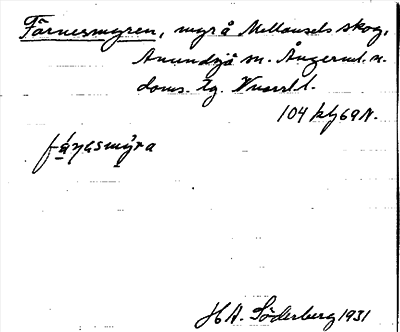 Färnesmyren, myr å Mellansels skog,
Anundsjö sn. Ångerml. n.
doms. lg. Vnorrl l.
104 kbj 69 N.
fáṇesmy̌ra
H A. Söderberg 1931